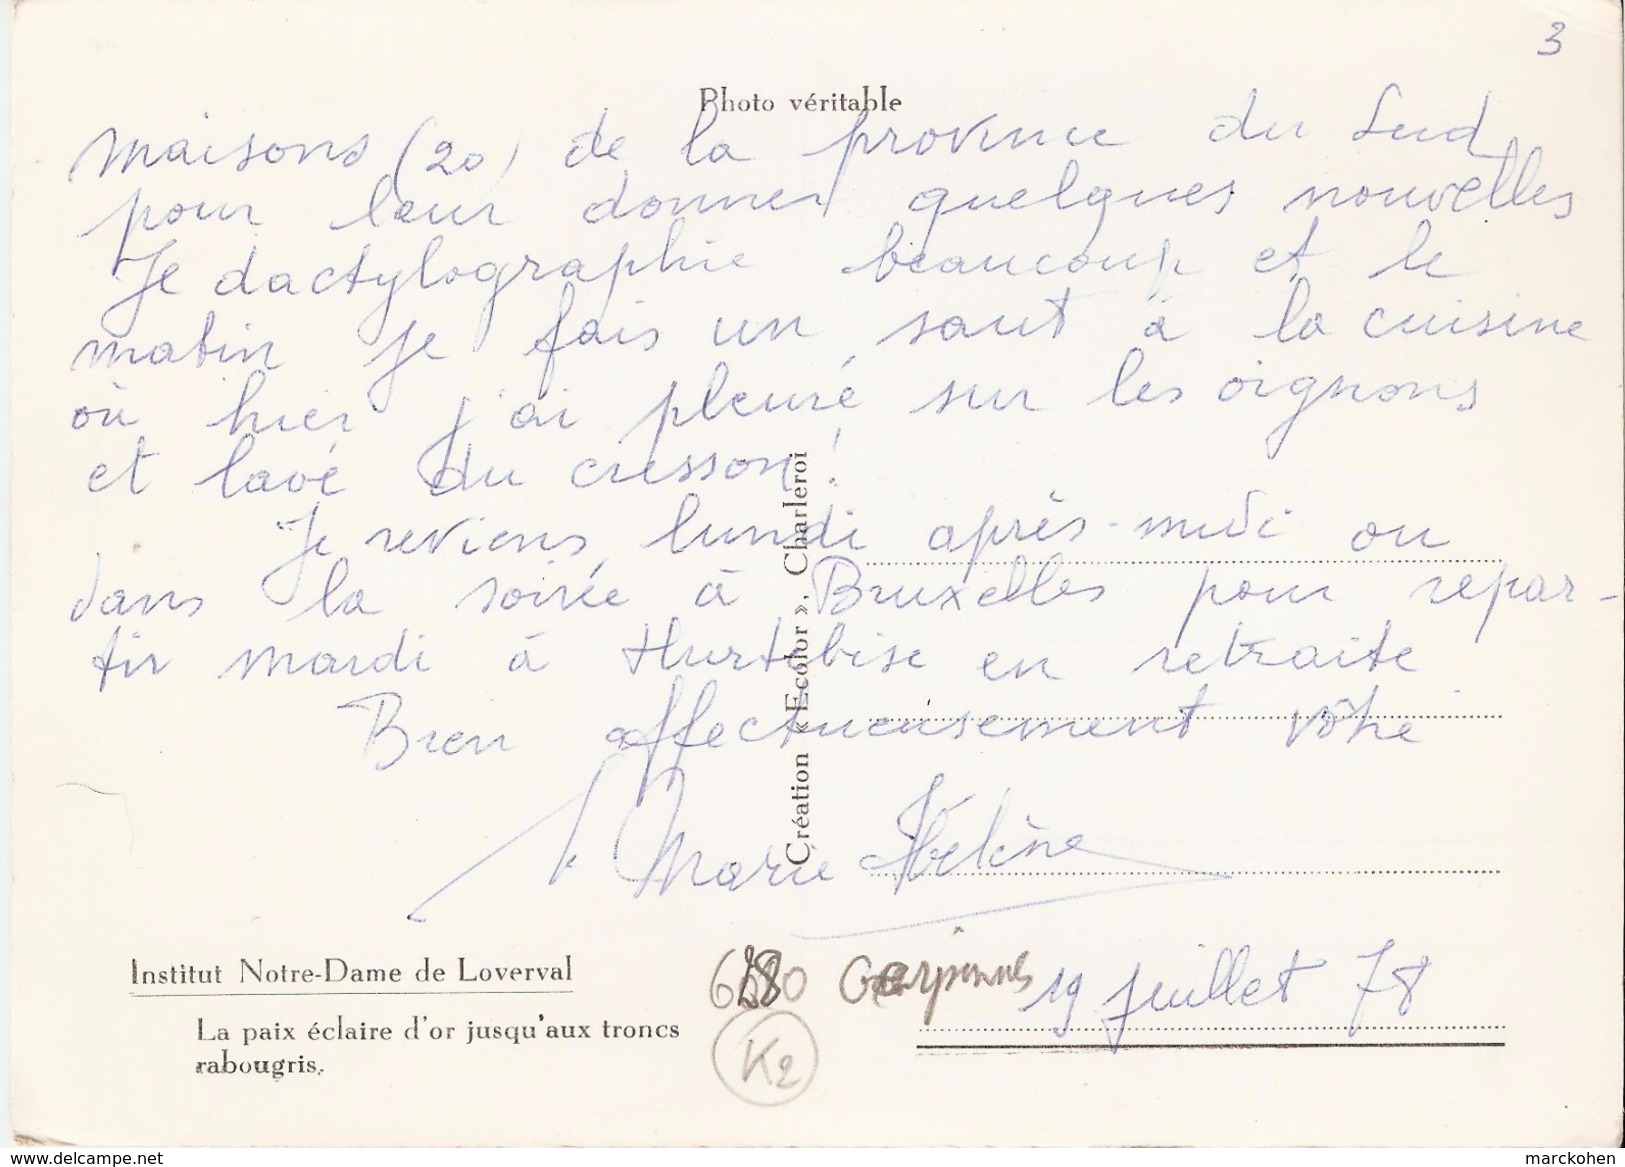 3
Photo véritable
maisons (20) de la province du Sud
pour leur donner quelques nouvelles
Je dactylographie beaucoup et le
matin je fais un saut à la cuisine
où hier j'ai pleuré sur les oignons
et lavé du cresson!
Je reviens lundi après-midi ou
dans la soirée à Bruxelles pour repar-
tir mardi à Hurtebise en retraite
Bien affectueusement vôtre
Marie Hélène
Création « Ecolor », Charleroi
Institut Notre-Dame de Loverval
La paix éclaire d'or jusqu'aux troncs
rabougris.
6280 Gerpinnes
K2
19 juillet 78
www.delcampe.net
marckohen